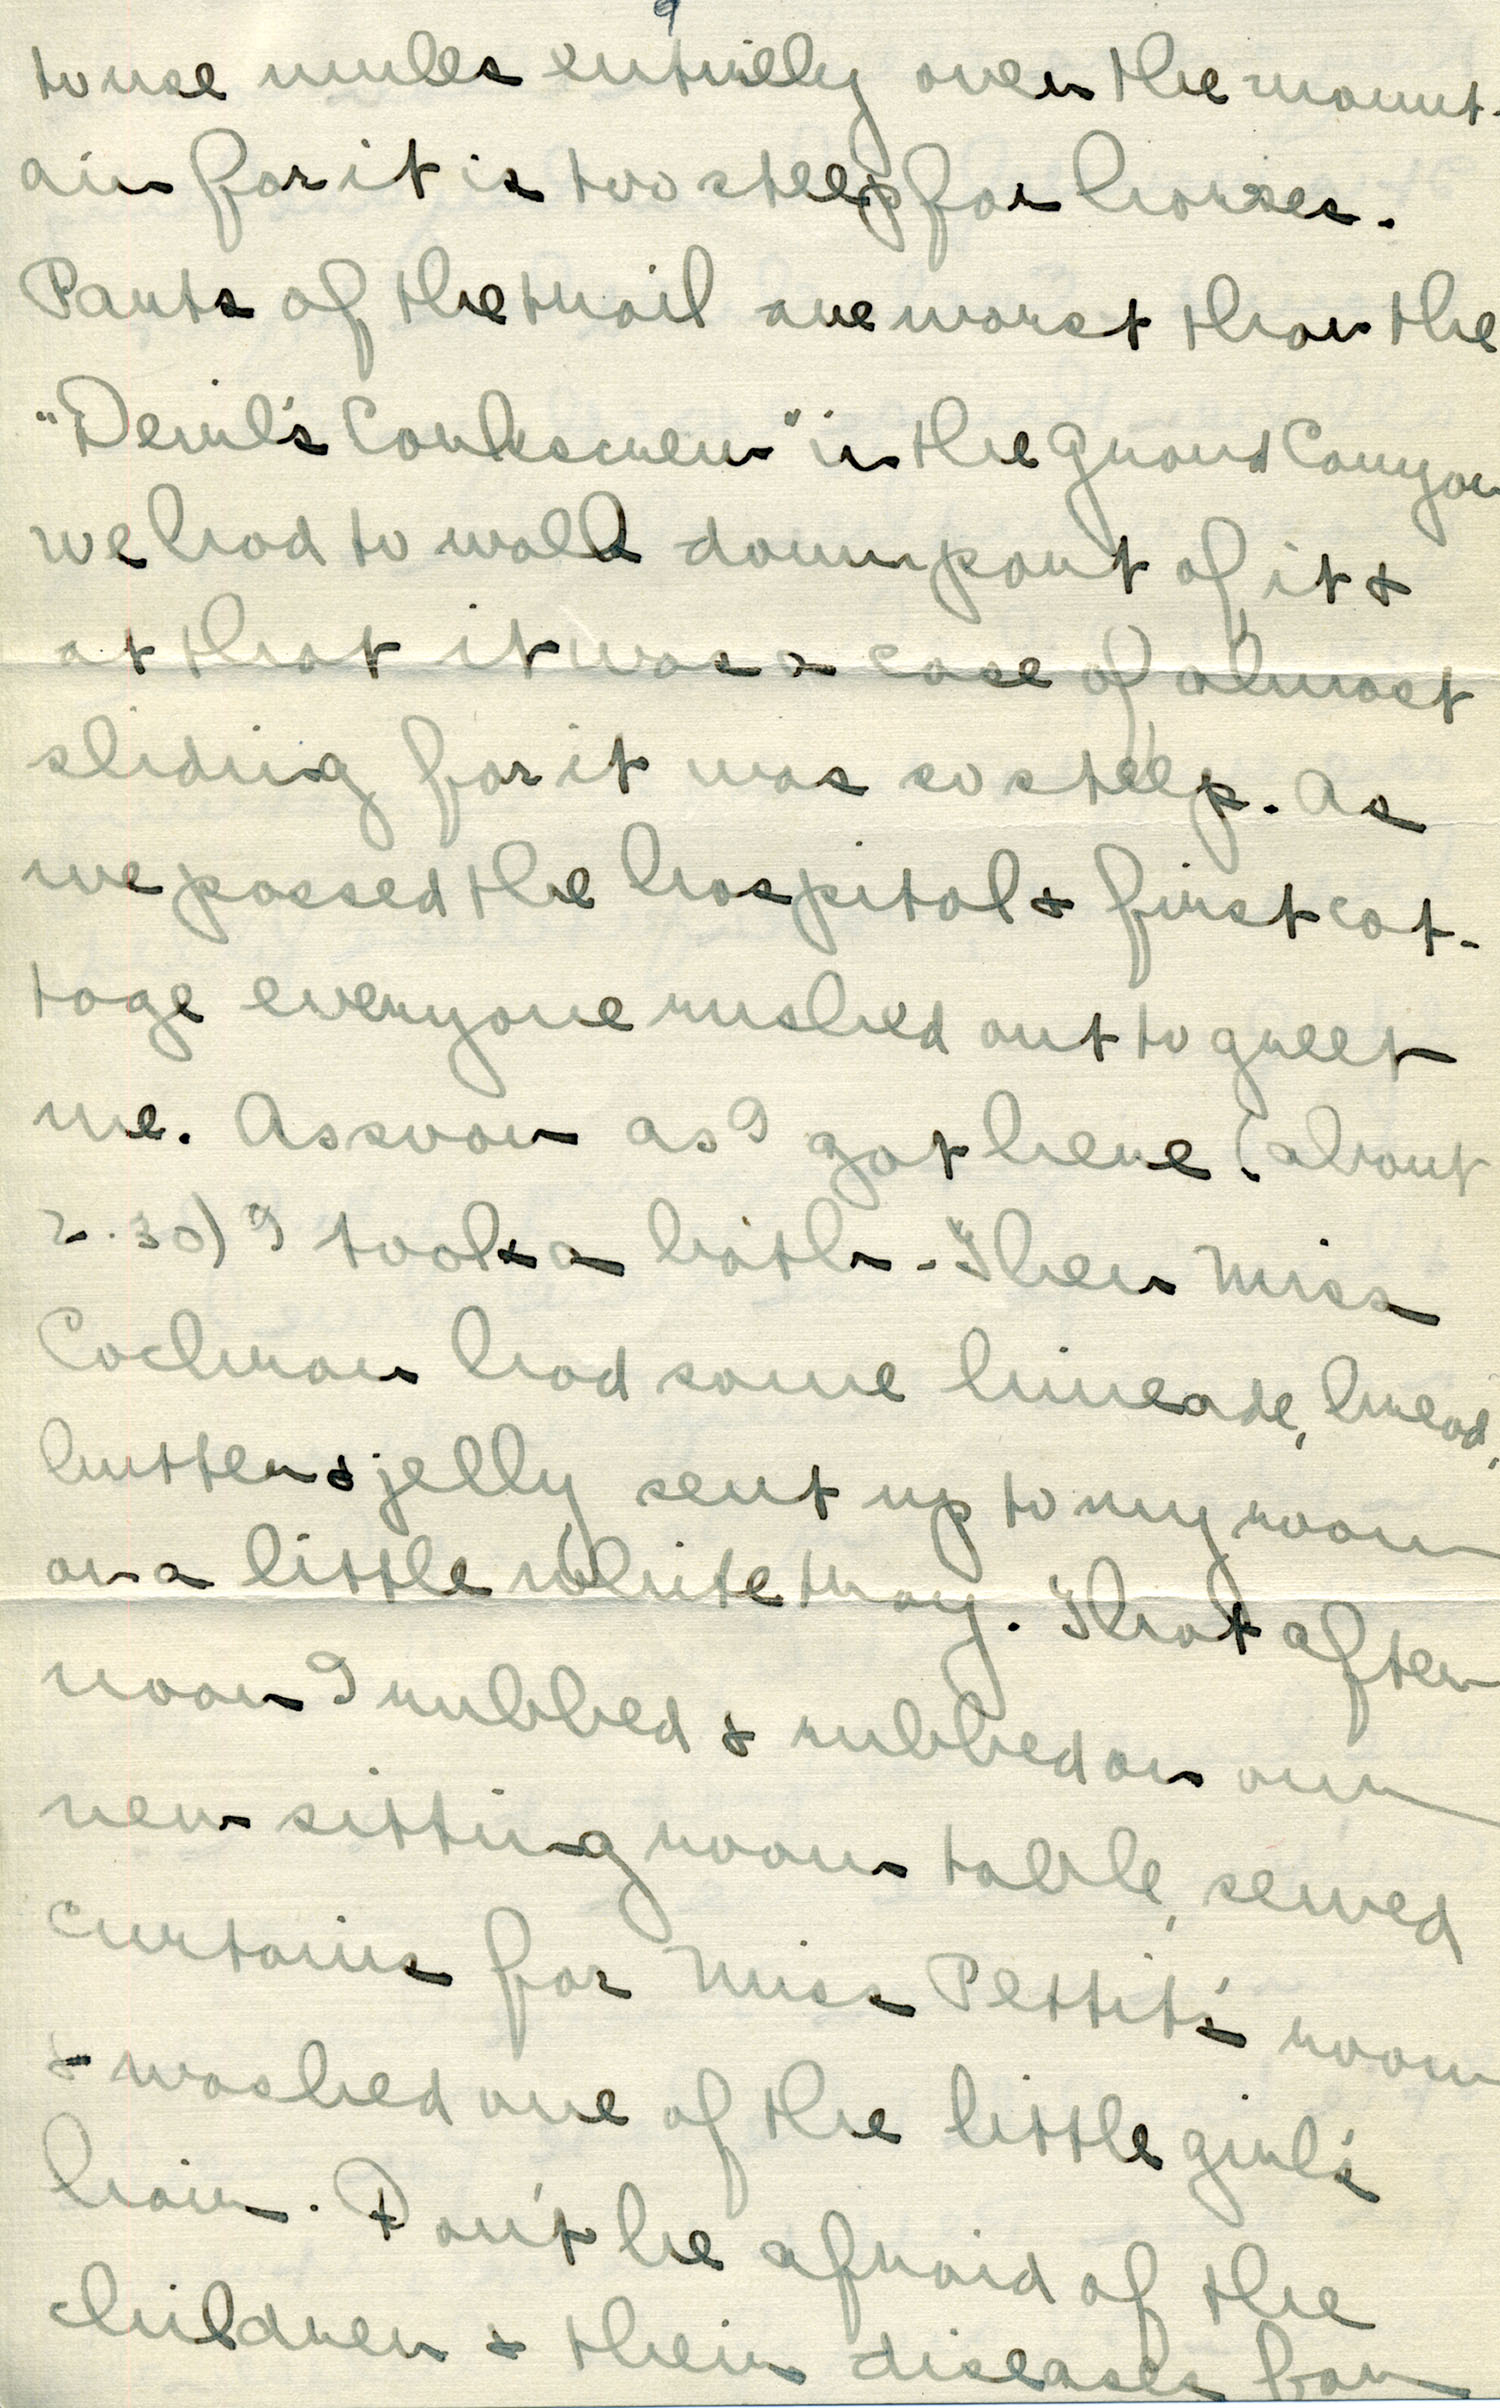 9
to use mules entirely over the mount-
ain for it is too steep for horses.
Parts of the trail are worst than the
"Devil's Corkscrew" in the Grand Canyon
we had to walk down part of it &
at that it was a case of almost
sliding for it was so steep. As
we passed the hospital & first cot-
tage everyone rushed out to greet
me. As soon as I got here (about
2.30) I took a bath. Then Miss
Cochran had some limeade, bread,
butter & jelly sent up to my room
on a little white tray. That after
noon I rubbed & rubbed on our
new sitting room table, sewed
curtains for Miss Pettit's room
& washed one of the little girl's
hair. Don't be afraid of the
children & their diseases for